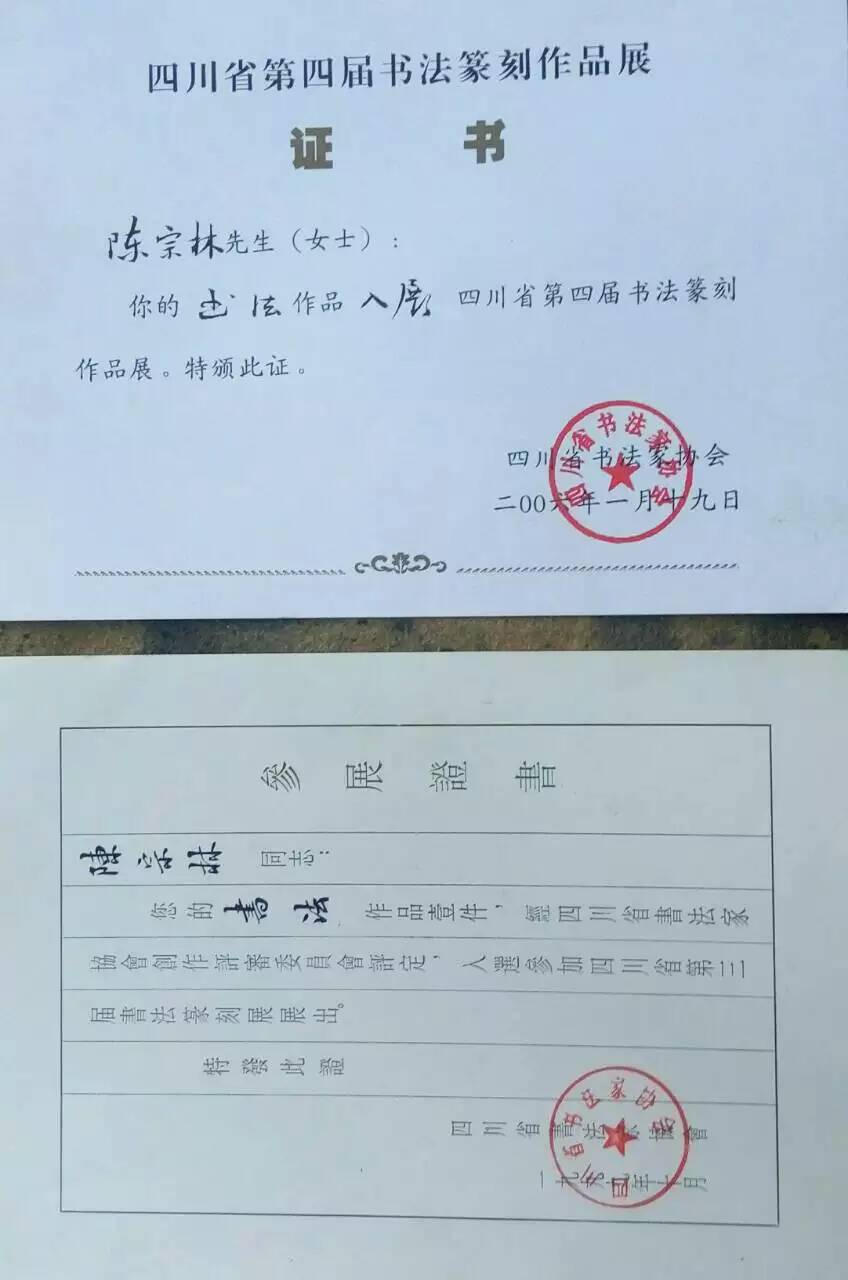 四川省第四届书法篆刻作品展
证 书
陈宗林先生（女士）：
你的 书法 作品 入展 四川省第四届书法篆刻
作品展。特颁此证。
四川省书法家协会
二00六年一月十九日
參展證書
陳宗林 同志：
您的 書法 作品壹件，經四川省書法家
協會創作評審委員會評定，入選參加四川省第三
届書法篆刻展展出。
特發此證
四川省書法家協會
一九九 年十月